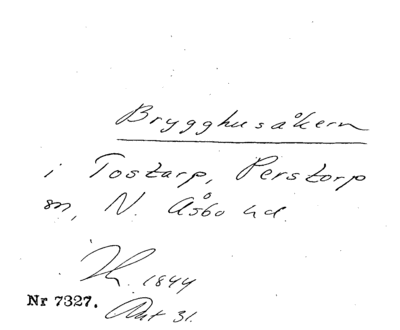 Brygghusåkern
i Tostarp, Perstorp
sn, N. Åsbo hd.
1844
Nr 7327. Akt 31.